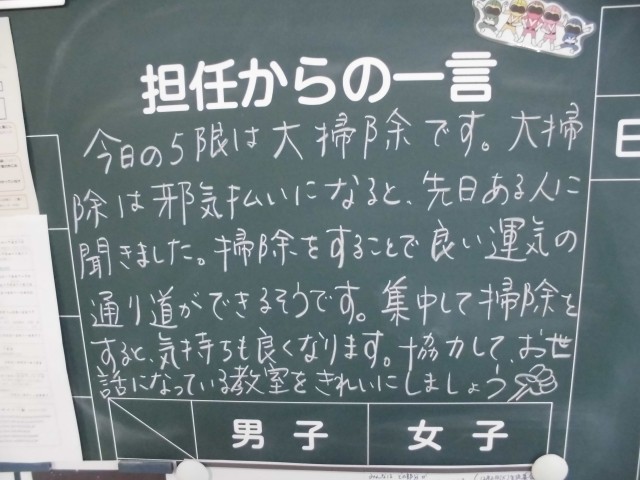 担任からの一言
今日の5限は大掃除です。大掃
除は邪気払いになると、先日ある人に
聞きました。掃除をすることで良い運気の
通り道ができるそうです。集中して掃除を
すると、気持ちも良くなります。協力して、お世
話になっている教室をきれいにしましょう
男子 女子
日